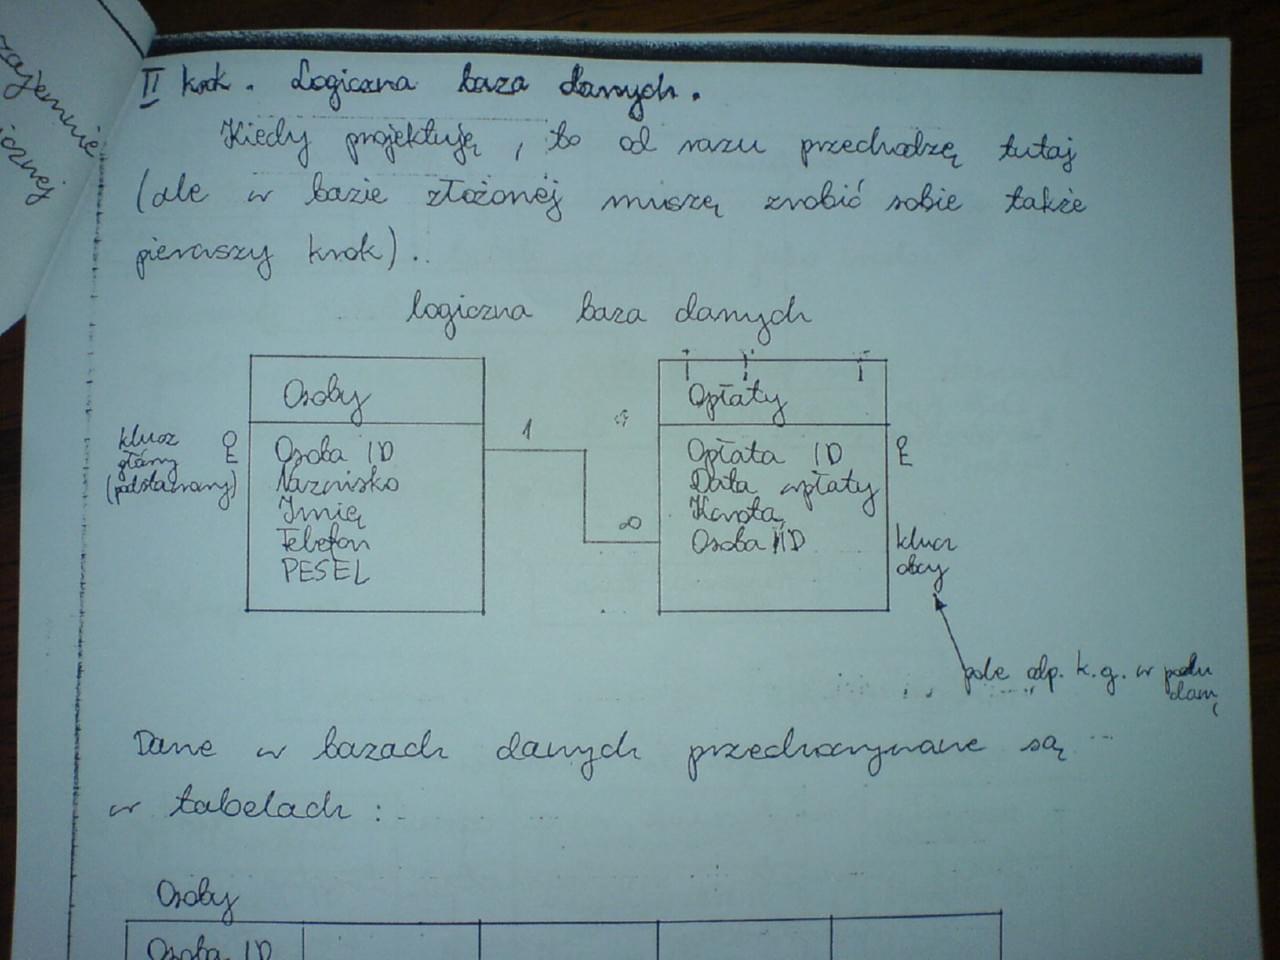 zajemnie
icznej
II krok. Logiczna baza danych.
Kiedy projektuję, to od razu przechodzę tutaj
(ale w bazie złożonej muszę zrobić sobie także
pierwszy krok).
logiczna baza danych
Osoby
Osoba ID
Nazwisko
Imię
Telefon
PESEL
klucz
główny
(podstawowy)
1
∞
Opłaty
Opłata ID
Data wpłaty
Kwota
Osoba ID
klucz
obcy
pole odp. k.g. w
Dane w bazach danych przechowywane są
w tabelach :
Osoby
Osoba ID